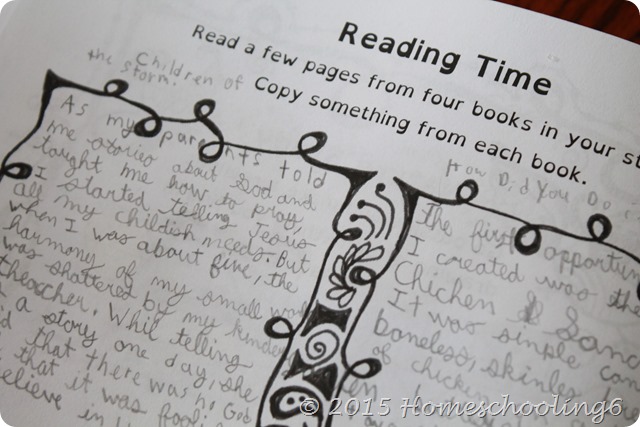 Reading Time
Read a few pages from four books in your st
Copy something from each book.
Children of
the storm.
As my parents told
me stories about God and
taught me how to pray,
I started telling Jesus
all my childish needs. But
when I was about five, the
harmony of my small
was shattered by my
theacher. Whil telling
a story one day, she
that there was no God
that it was
elieve in
How Did You Do
The first opportun
I created was the
Chicken Sand
It was simple
boneless, skinless
of chick
© 2015 Homeschooling6